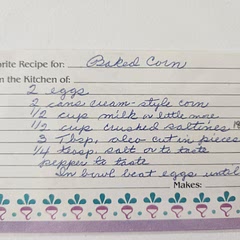 orite Recipe for: Baked Corn
m the Kitchen of:
2 eggs
2 cans cream-style corn
1/2 cup milk or little more
1/2 cup crushed saltines
3 Tbsp. oleo-cut in pieces
1/4 teasp. salt or to taste
pepper to taste
In bowl beat eggs until
Makes: